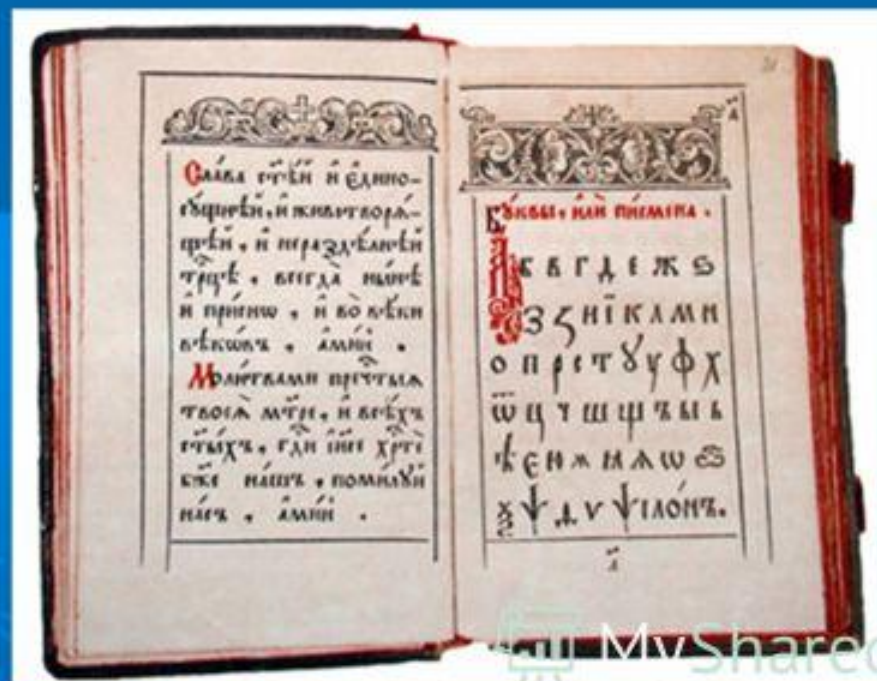 Сла́ва ст҃ѣ́й и҆ є҆дино-
сꙋ́щнѣй, и҆ животворѧ́-
щей, и҆ нераздѣ́лнѣй
трⷪ҇цѣ, всегда̀ ны́нѣ
и҆ при́снѡ, и҆ во̀ вѣ́ки
вѣкѡ́въ, а҆ми́нь.
Моли́твами пречⷭ҇тыѧ
твоеѧ̀ мт҃ре, и҆ всѣ́хъ
ст҃ы́хъ, гдⷭ҇и і҆и҃се хрⷭ҇тѐ
бж҃е на́шъ, поми́лꙋй
на́съ, а҆ми́нь.
Бꙋ́квы, и҆лѝ писмена̀.
А б в г д е ж ѕ
з и ї к л м н
о п р с т ꙋ у ф х
ѿ ц ч ш щ ъ ы ь
ѣ є ю ѫ ѧ ѡ
ѯ ѱ ѳ ѵ ѱило́нъ.
а҃
MyShared